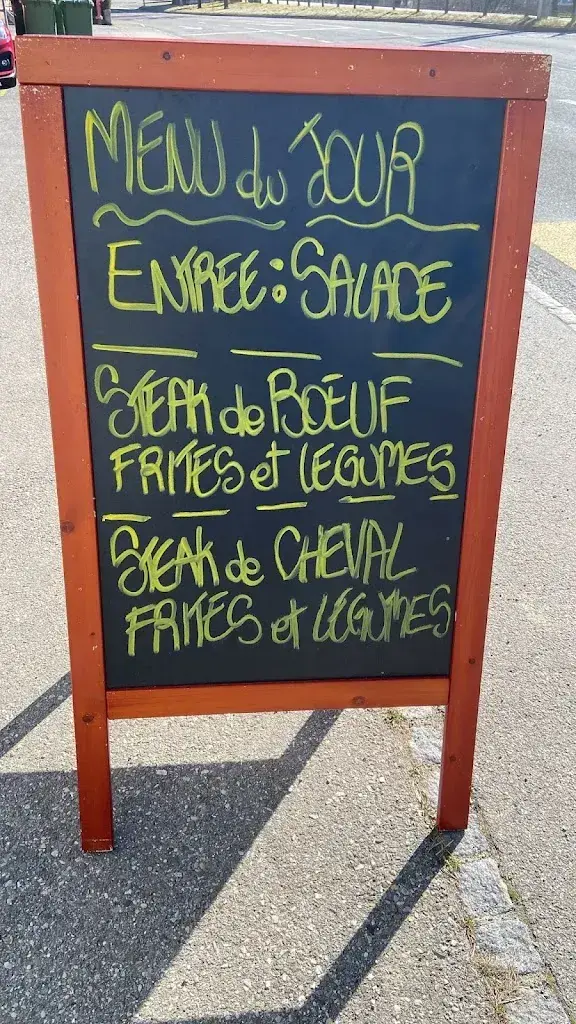 MENU du JOUR
ENTREE: SALADE
STEAK de BOEUF
FRITES et LEGUMES
STEAK de CHEVAL
FRITES et LÉGUMES